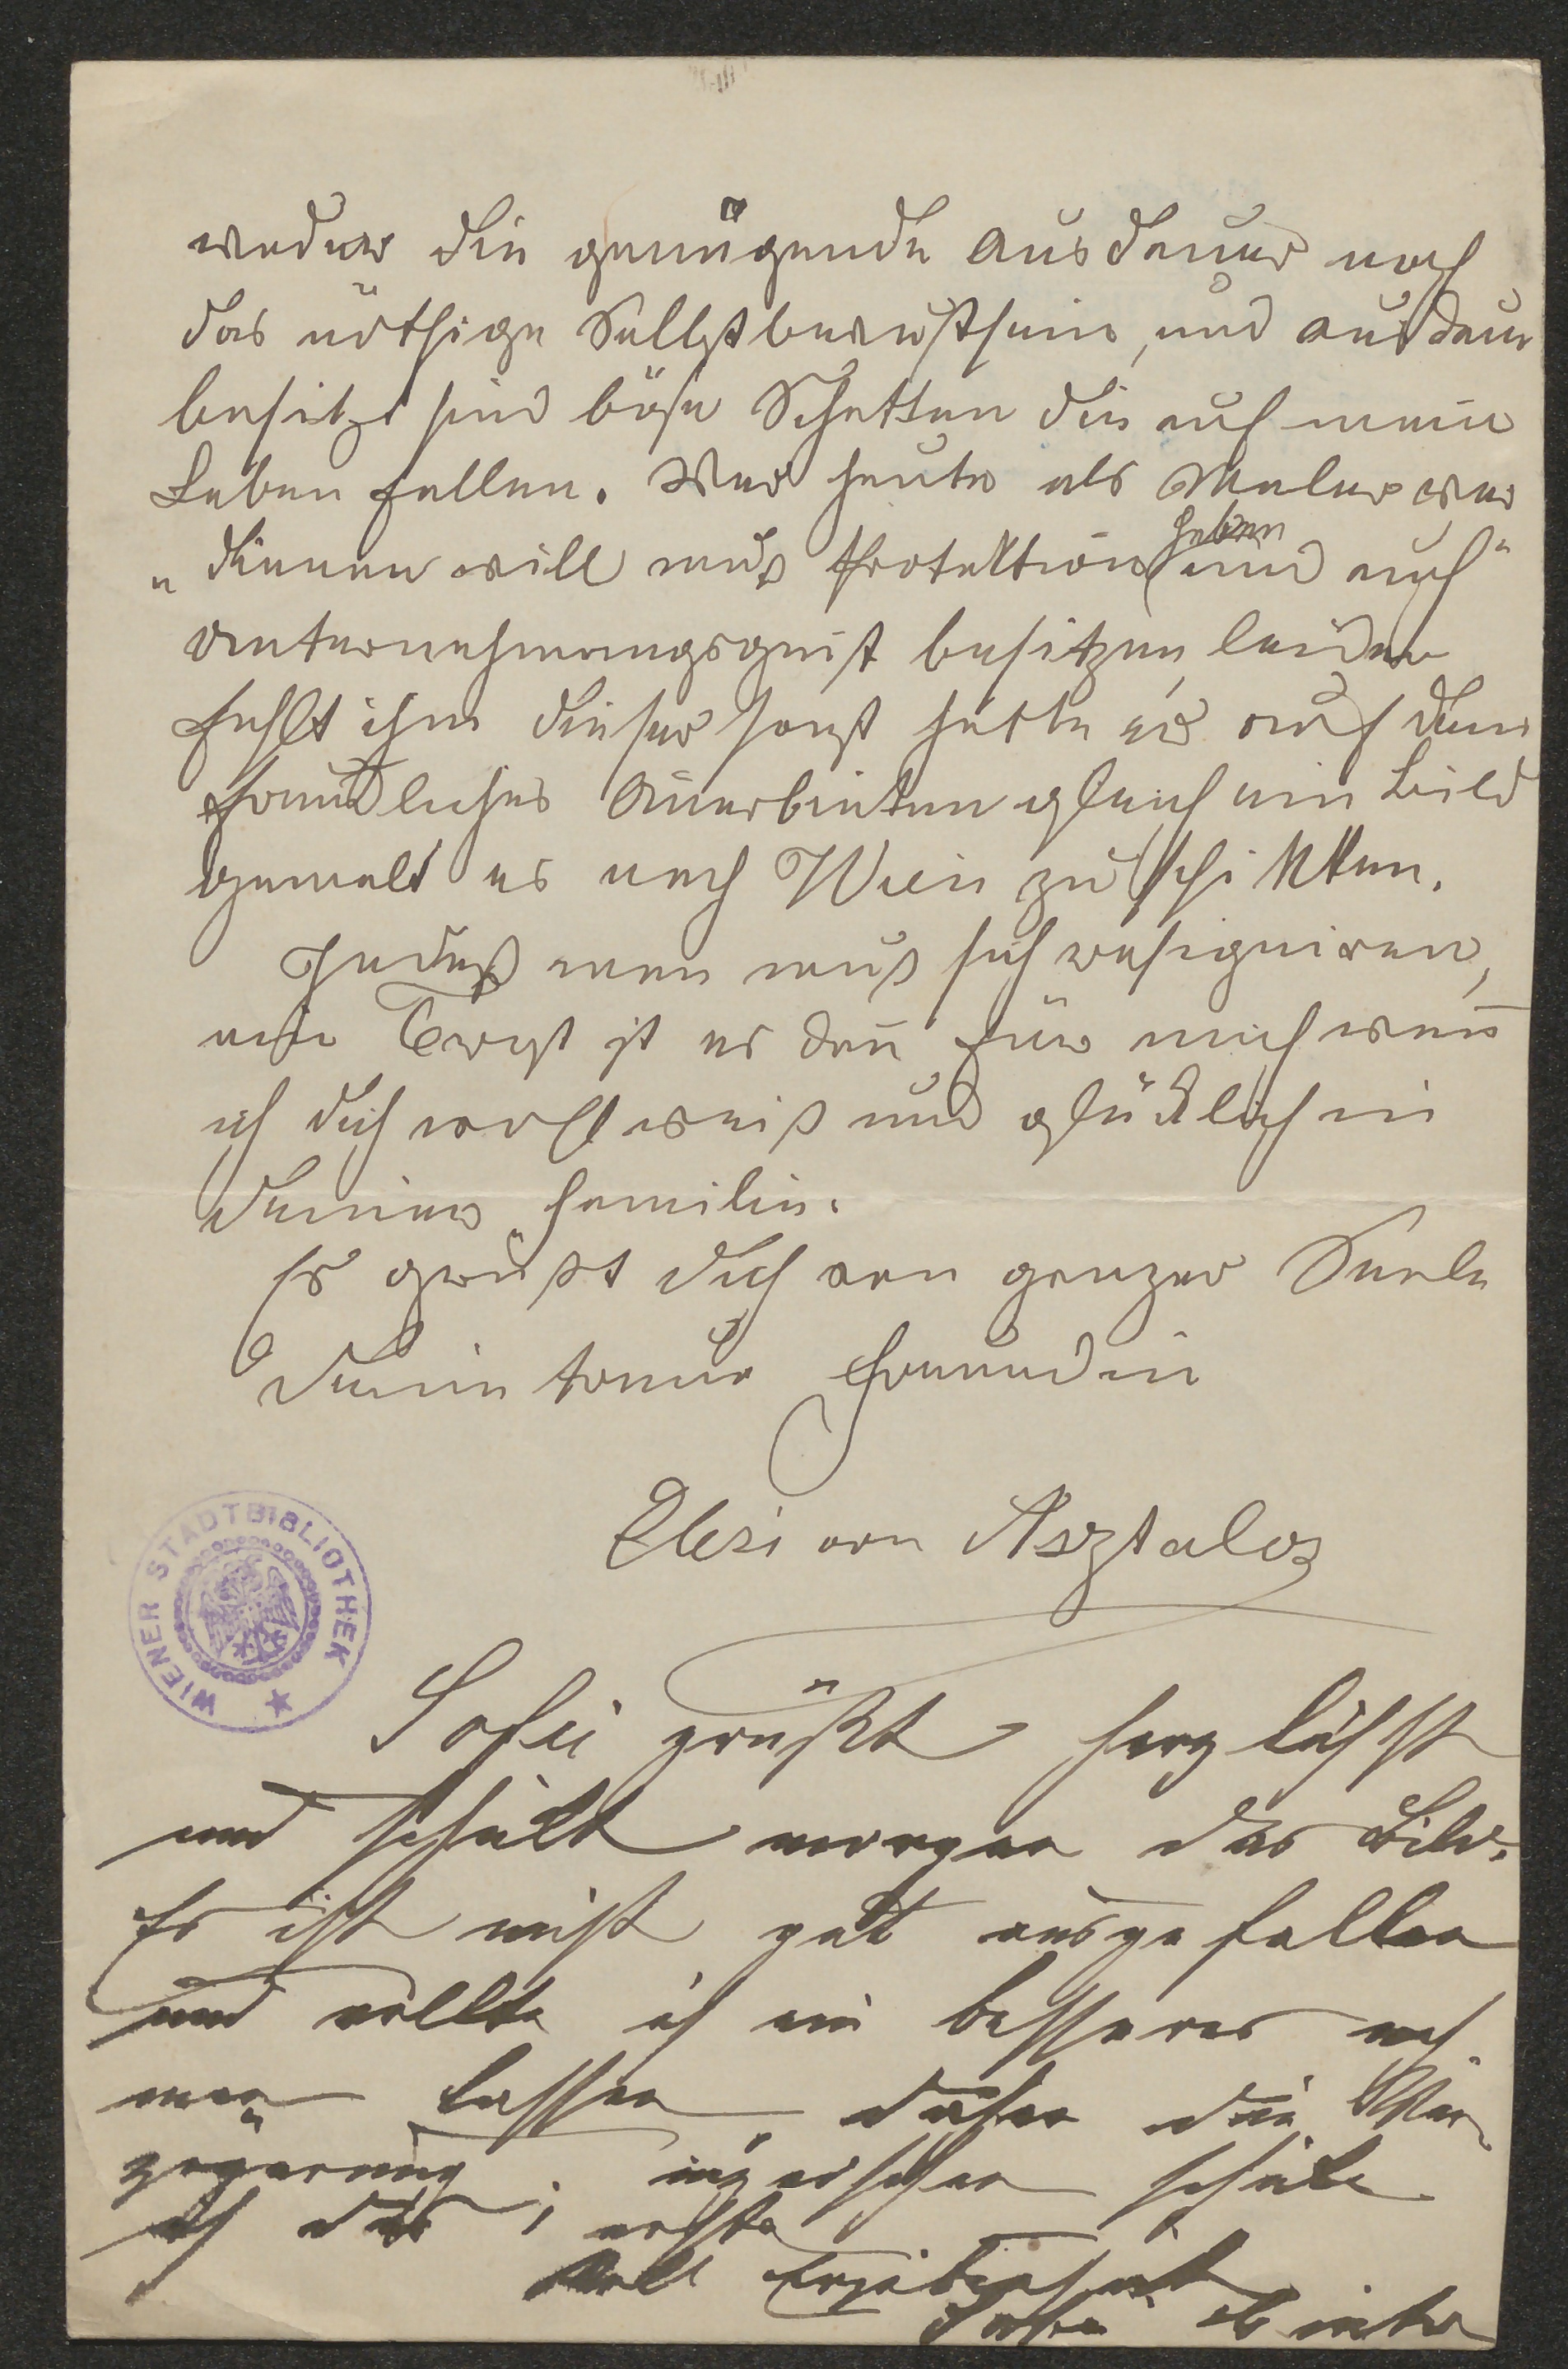 weder die genügende Ausdauer noch
das nöthige Selbstbewußtsein, und
besitzt sind böse Schatten die auf mein
Leben fallen. Wer heute als Maler ver
„dienen will muß Protektion haben und auch“
Unternehmungsgeist besitzen, leider
fehlt ihm dieser sonst hätte er auf dein
freundliches Anerbieten gleich ein Bild
gemalt es nach Wien zu schikken.
Indeß man muß sich resigniren,
ein Trost ist es den̄ für mich wen̄
ich dich wohl weiß und glücklich in
deiner Familie.
Es grüßt dich von ganzer Seele
Deine treue Freundin
von Asztalos
WIENER STADTBIBLIOTHEK
Sofie grüßt herzlichst
und schickt morgen das Bild.
Es ist nicht gut ausgefallen
und wollte ich ein besseres neh
men lassen, daher die Ver
zögerung; inzwischen schicke
ich das erste
Voll Ergebenheit